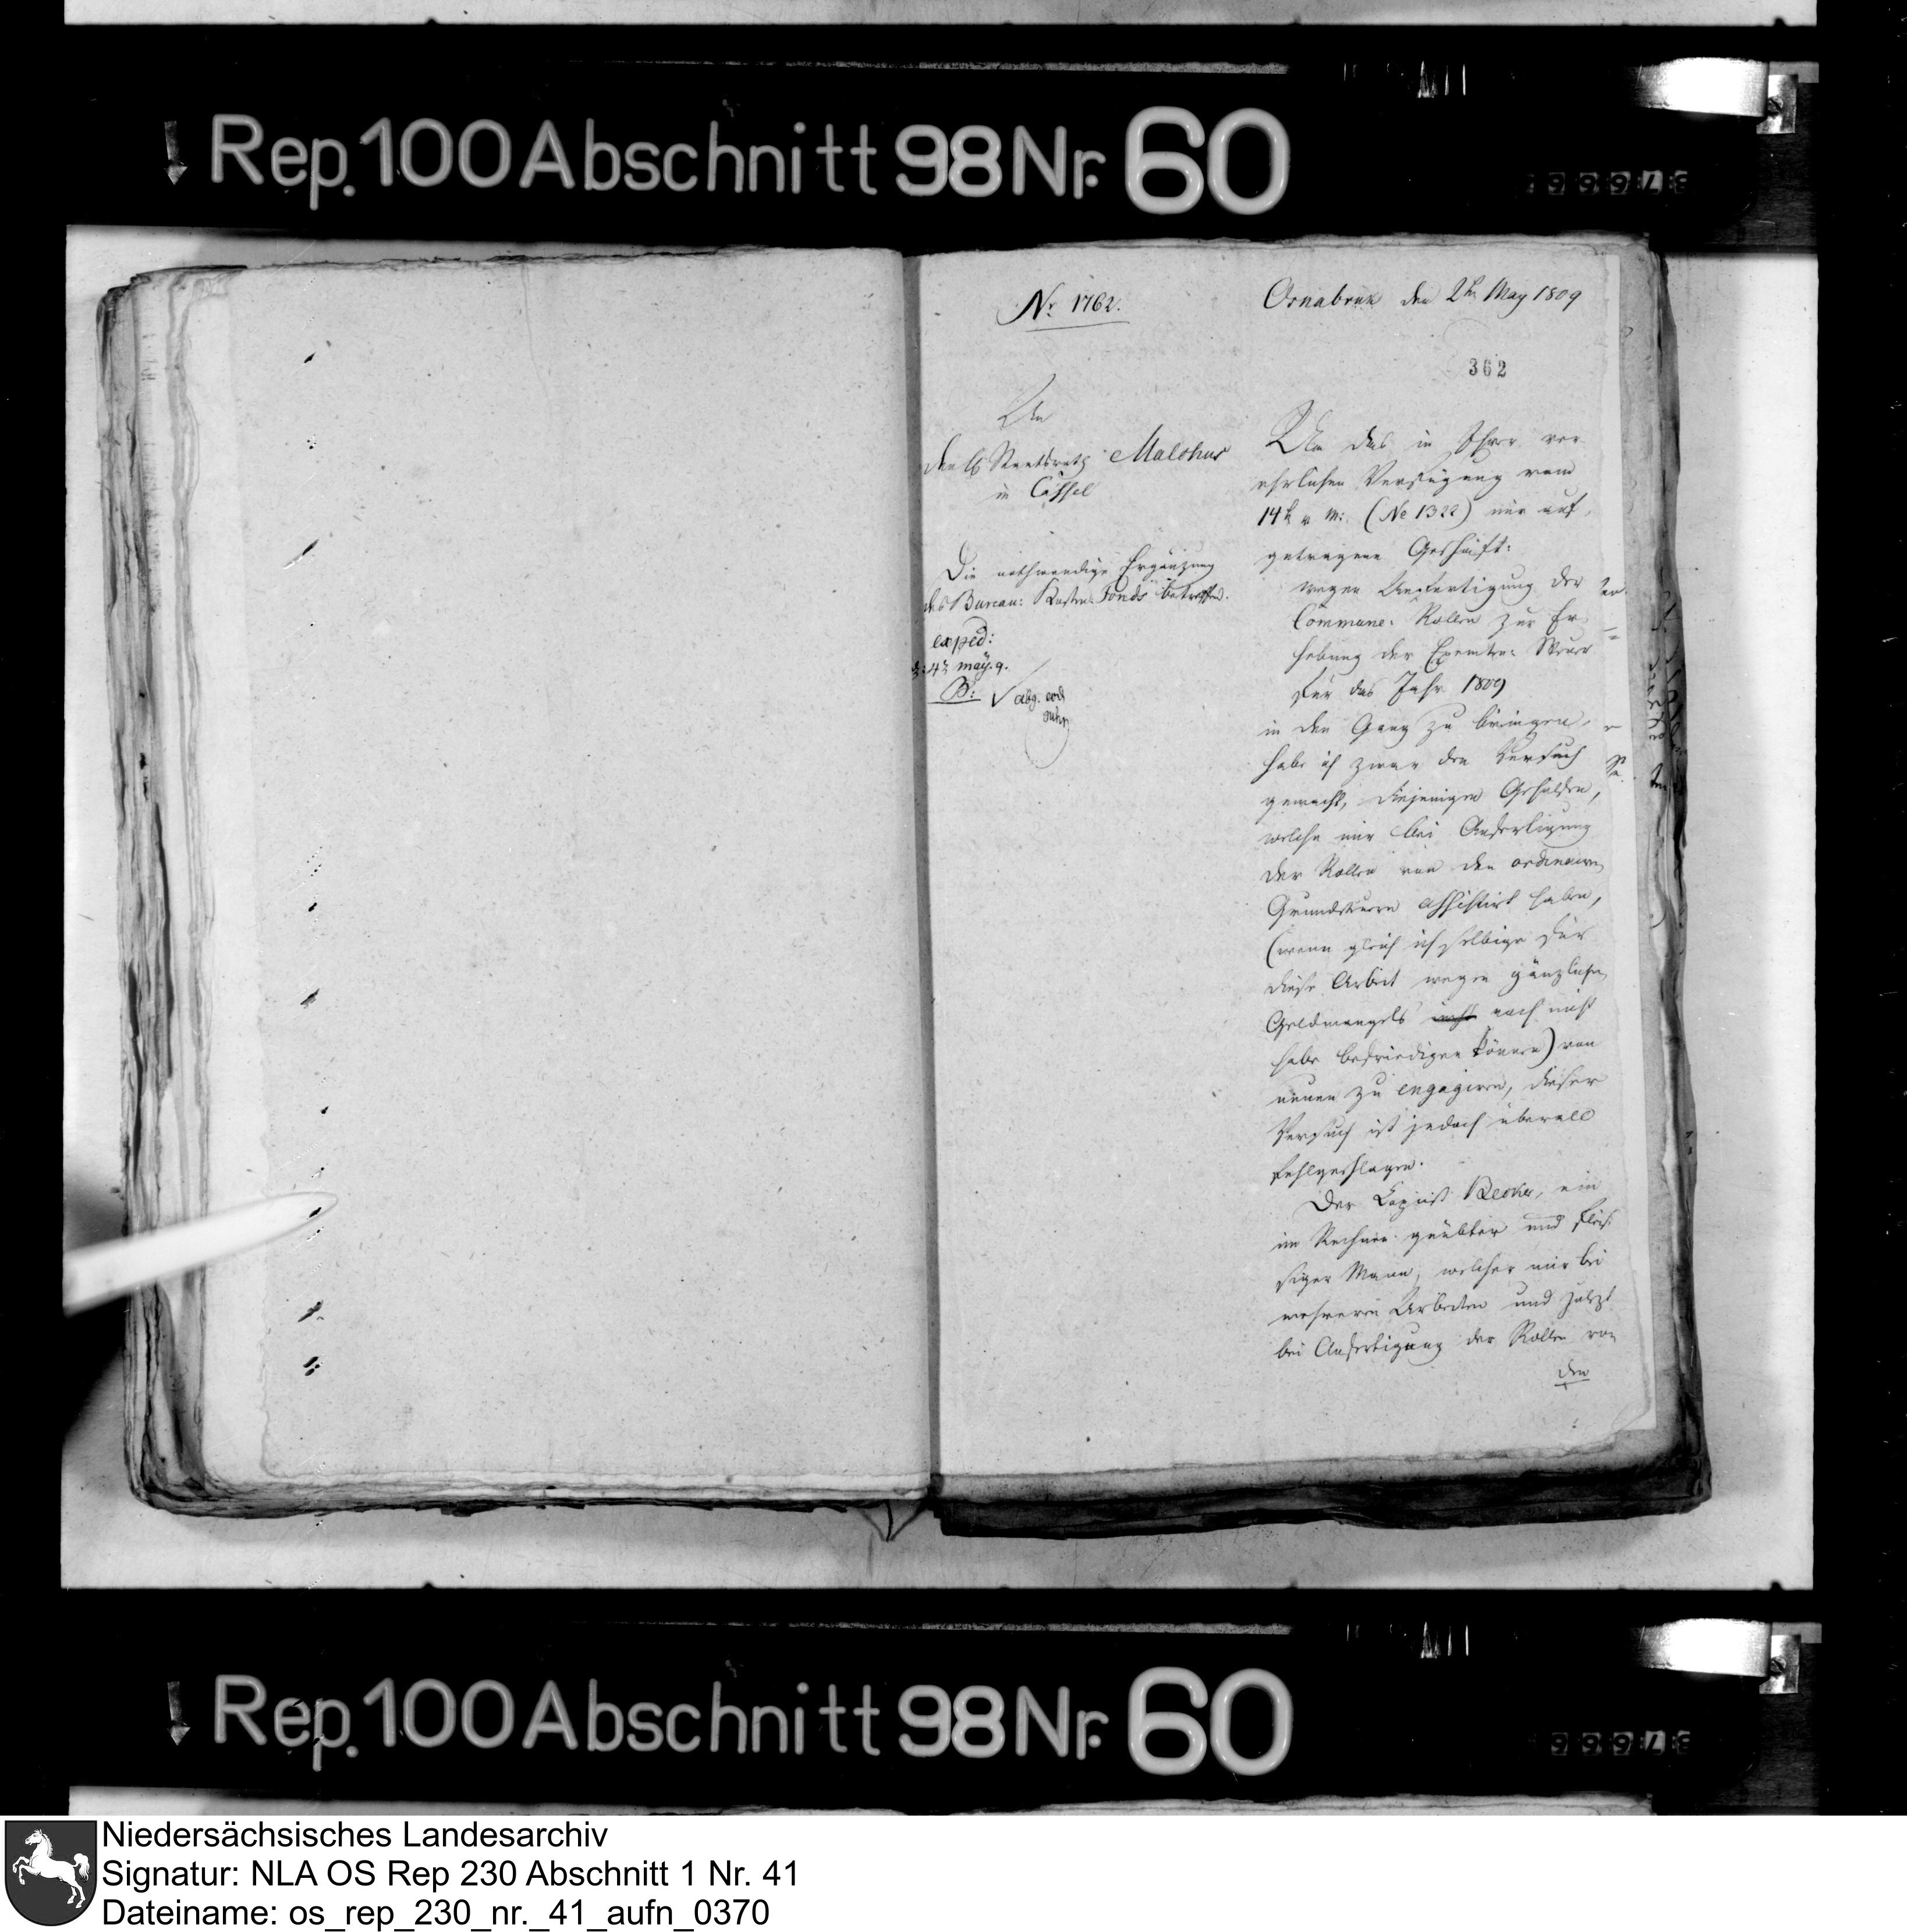 Rep. 100 Abschnitt 98 Nr. 60
Nr. 1762.
Osnabruk den 2ten May 1809
362
An
den H Staatsrath Malchus
in Cassel
Die nothwendige Ergänzung
des Bureau: Kosten-Fonds betreffend.
exped:
4ten may. 9.
B:
abg. eod
Um das in Ihrer ver-
ehrlichen Verfügung vom
14ten v. M: (No 1322) mir auf-
getragene Geschäft:
wegen Anfertigung der
Commune: Rollen zur Er-
hebung der Exemten: Steuer
für das Jahr 1809
in den Gang zu bringen,
habe ich zwar den Versuch
gemacht, diejenigen Gehülfen,
welche mir bei Anfertigung
der Rollen von den ordinairen
Grundsteuern assistirt haben,
(wenn gleich ich selbige für
diese Arbeit wegen gänzlichen
Geldmangels nicht noch nicht
habe befriedigen können) von
neuen zu engagiren, dieser
Versuch ist jedoch überall
fehlgeschlagen.
Der Copiist Becker, ein
im Rechnen geübter und fleis-
siger Mann, welcher mir bei
mehreren Arbeiten und zuletzt
bei Anfertigung der Rollen von
den
Rep. 100 Abschnitt 98 Nr. 60
Niedersächsisches Landesarchiv
Signatur: NLA OS Rep 230 Abschnitt 1 Nr. 41
Dateiname: os_rep_230_nr._41_aufn_0370